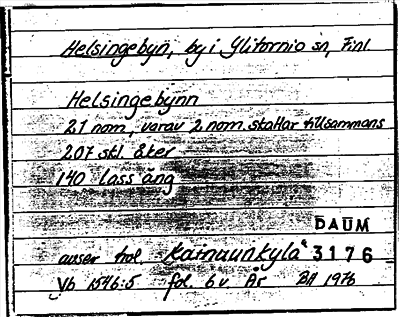 Helsingebyn, by i Ylitornio sn, Finl.
Helsingebynn
21 nom, varav 2 nom. skattar tillsammans
207 skl. åker
140 lass äng
DAUM
avser trol. Kainuunkylä 3176
Vb 1546:5 fol. 6v År BH 1976